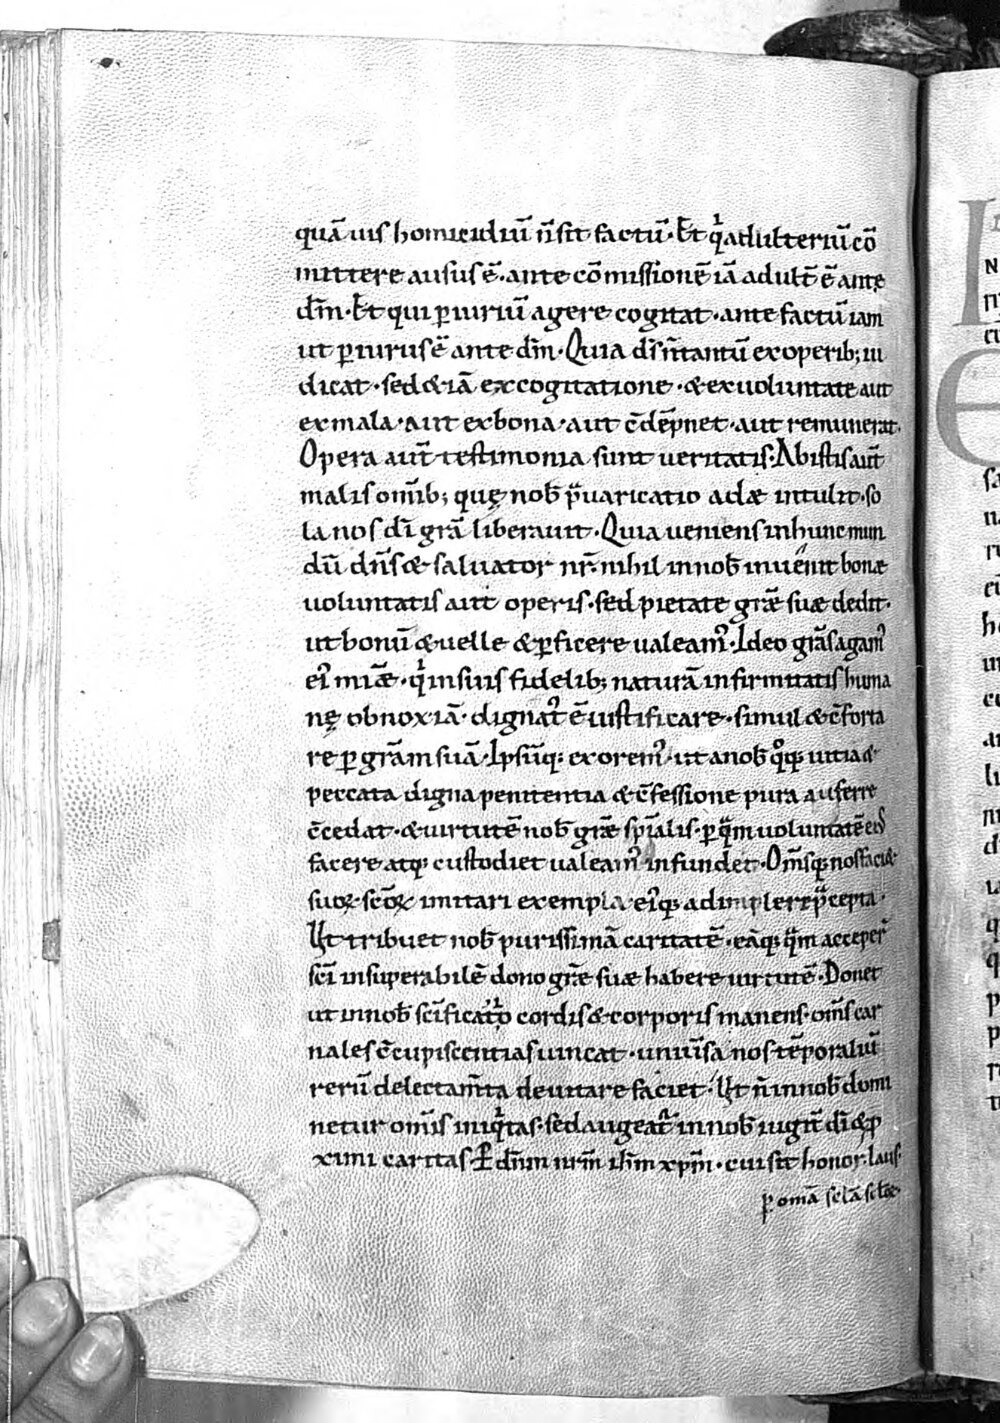 quā uis homicidiū n̄ sit factū. Et qͥ adulteriū cō
mittere ausus ē. ante cōmissionē iā adult̄ ē ante
dm̄. Et qui ꝑiuriū agere cogitat. ante factū iam
ut ꝑiurus ē ante dm̄. Quia ds̄ n̄ tantū ex operib; iu
dicat. sed &iā ex cogitatione. & ex uoluntate aut
ex mala. aut ex bona. aut c̄dēpnet. aut remunerat.
Opera aut̄ testimonia sunt ueritatis. Ab istis aut̄
malis om̄ib; quę nob̄ p̄uaricatio adæ intulit. so
la nos dī grā liberauit. Quia ueniens in hunc mun
dū dn̄s & saluator nr̄. nihil in nob̄ inuenit bonæ
uoluntatis aut operis. sed pietate grǣ suæ dedit.
ut bonū & uelle & ꝑficere ualeam᾽. Ideo grās agam᾽
ei᾽ miǣ. qͥ in suis fidelib; naturā infirmitatis huma
nę obnoxiā. dignat᾽ ē iustificare. simul & c̄forta
re ꝑ grām suā. Ipsūq; exorem᾽. ut a nob̄ qͦq; uitia &
peccata digna penitentia & c̄fessione pura auferre
c̄cedat. & uirtutē nob̄ grǣ sp̄ialis. ꝑ quā uoluntatē ei᾽
facere atq; custodiet ualeam᾽ infundet. Om̄sq; nos faci&
suoꝝ sc̄oꝝ imitari exempla. ei᾽q; adimplere p̄cepta.
Ut tribuet nob̄ purissimā caritatē. eāq; quā acceper᾽
sc̄i insuperabilē dono grǣ suæ habere uirtutē. Donet
ut in nob̄ sc̄ificatͦ cordis & corporis manens. om̄s car
nales c̄cupiscentias uincat. uniu̅sa nos tēporaliū
rerū delectam̄ta deuitare faciet. Ut n̄ in nob̄ domi
netur om̄is iniqͥtas. sed augeat᾽ in nob̄ iugit̄ dī & ꝓ
ximi caritas. P dn̄m nrm̄ ihm̄ xpm̄. cui sit honor. laus.
ꝑ om̄a sc̄la sc̄loꝝ.